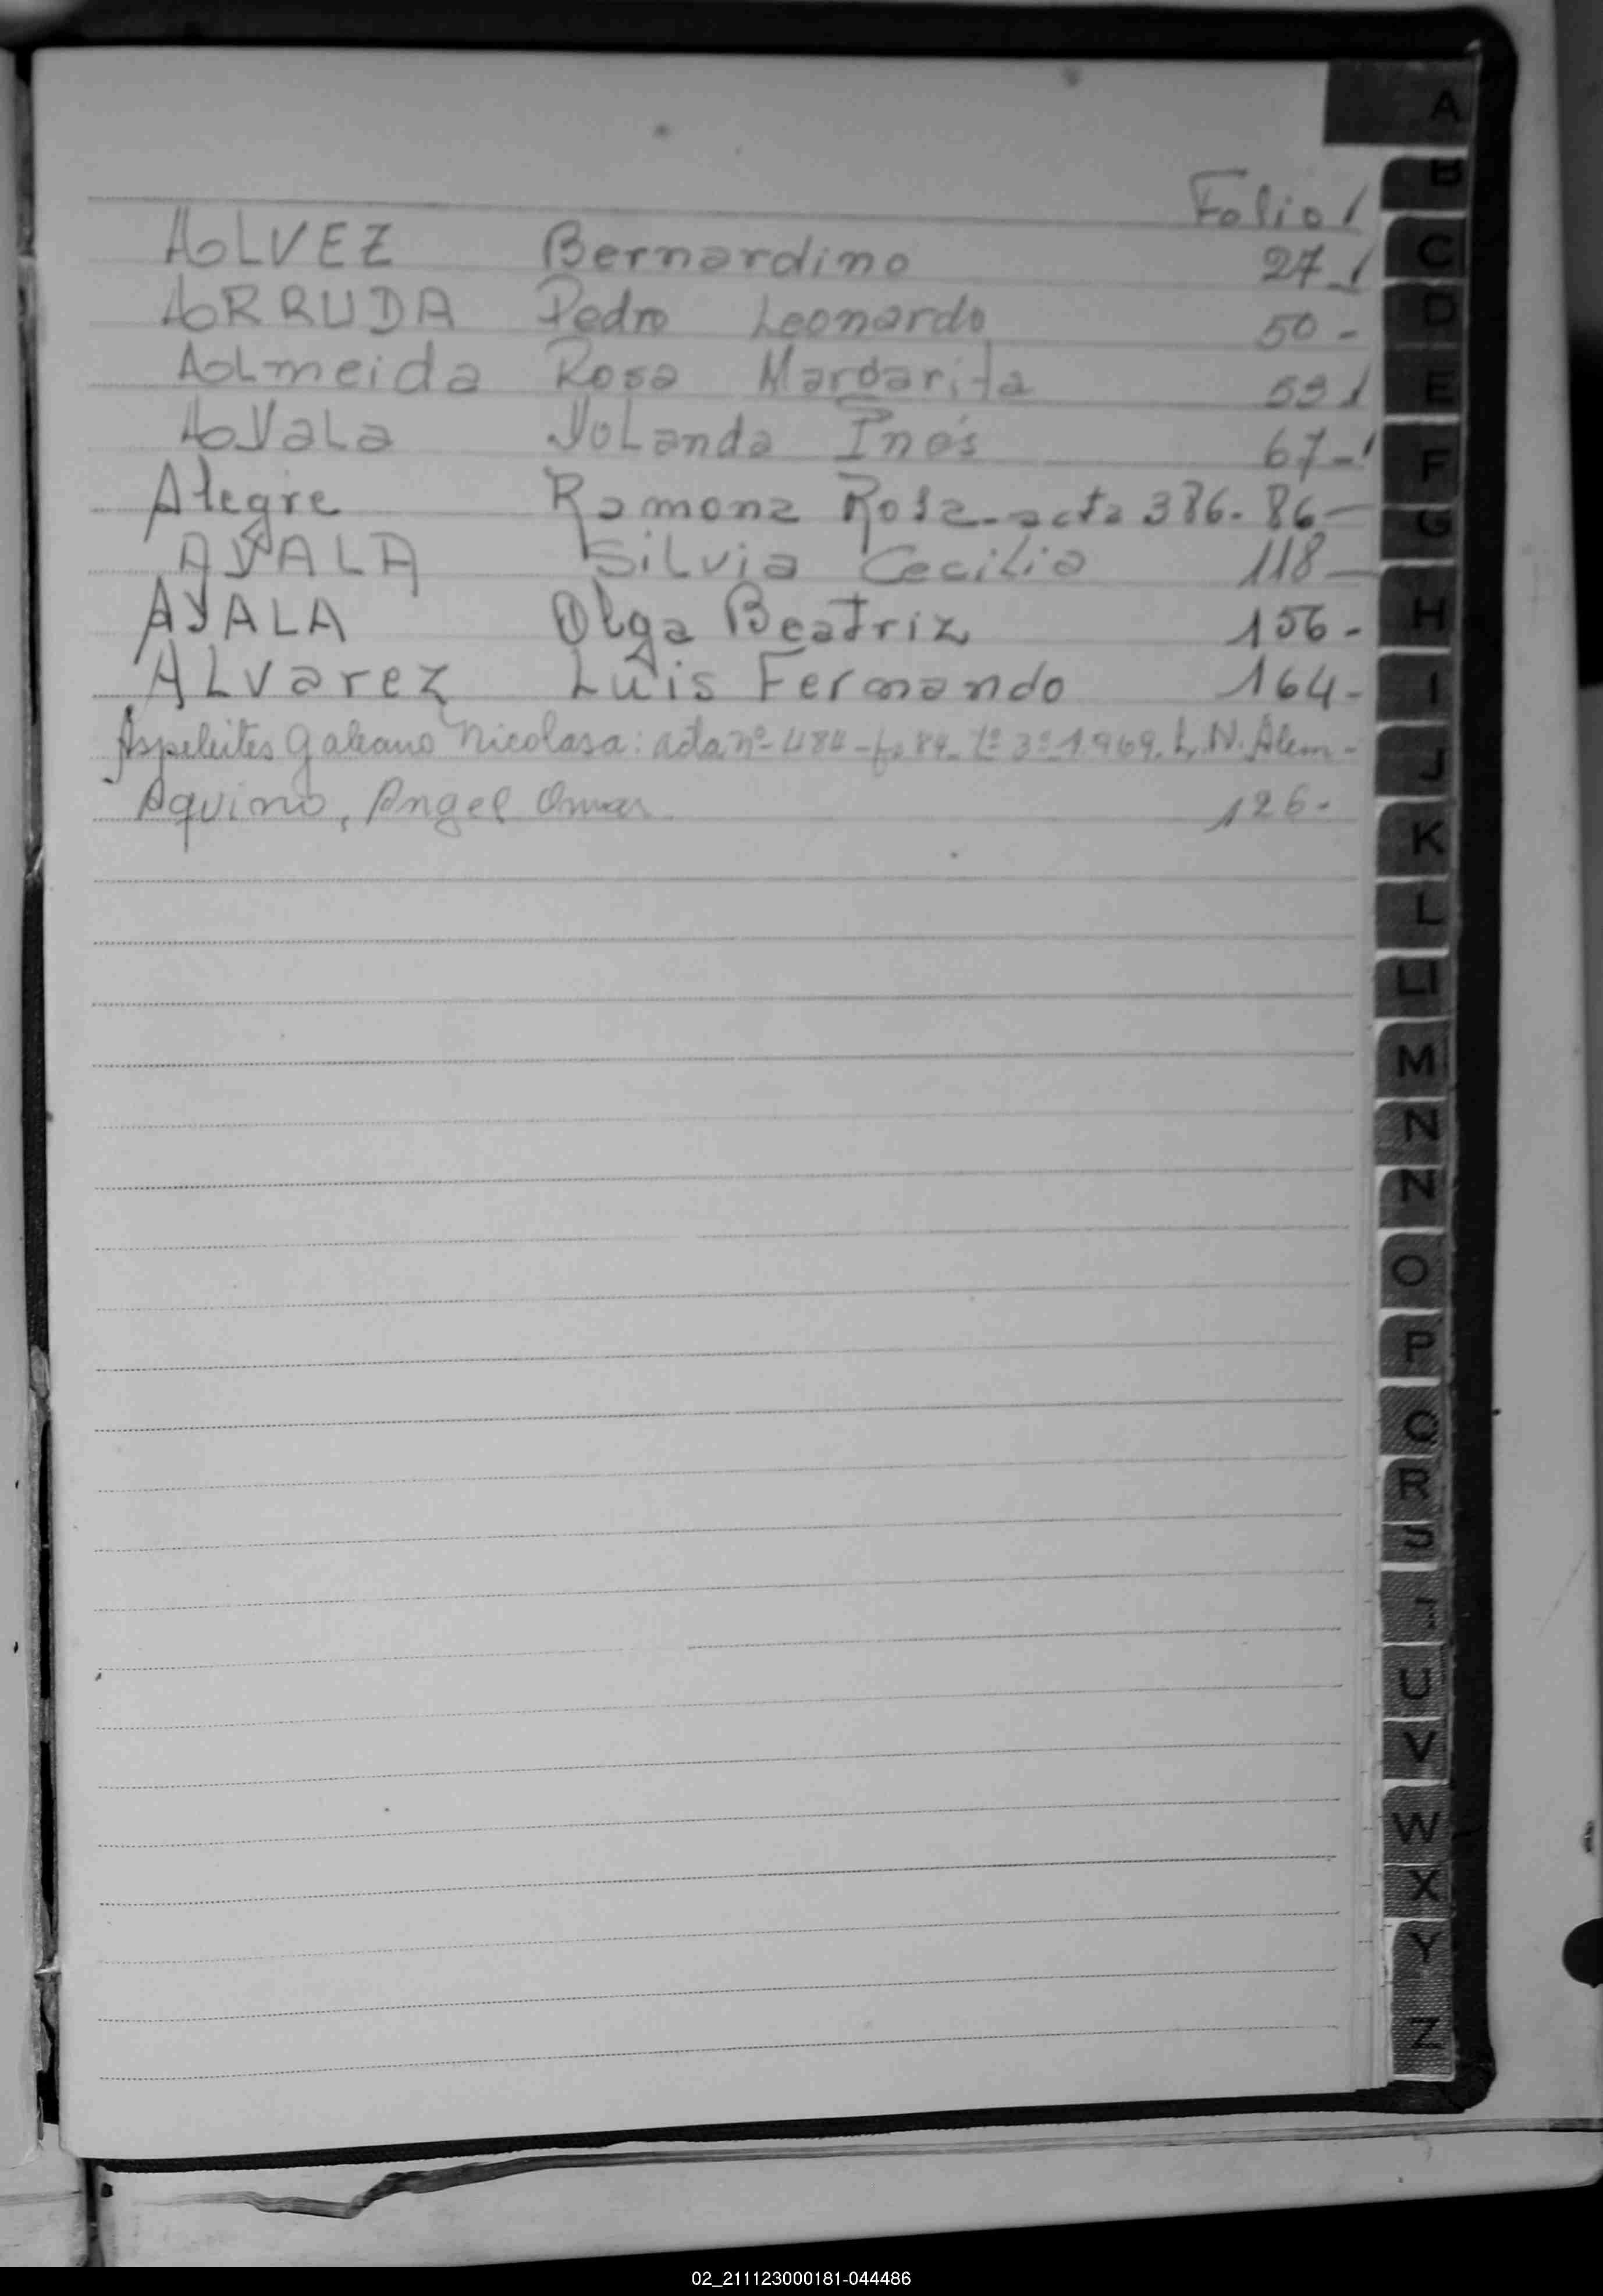 Folio
ALVEZ Bernardino 27-
ARRUDA Pedro Leonardo 50-
ALmeida Rosa Margarita 59
AYaLa YoLanda Inés 67-
Alegre Ramona Rosa - acta 386 - 86-
AYALA SiLvia Cecilia 118-
AYALA Olga Beatriz 156-
ALvarez Luis Fernando 164-
Galeano Nicolasa: acta nº 484 - fo 84 - tº 3º 1969. L.N. Alem-
Aquino, Angel Omar 126-
A
B
C
D
E
F
G
H
I
J
K
L
LL
M
N
Ñ
O
P
Q
R
S
T
U
V
W
X
Y
Z
02_211123000181-044486